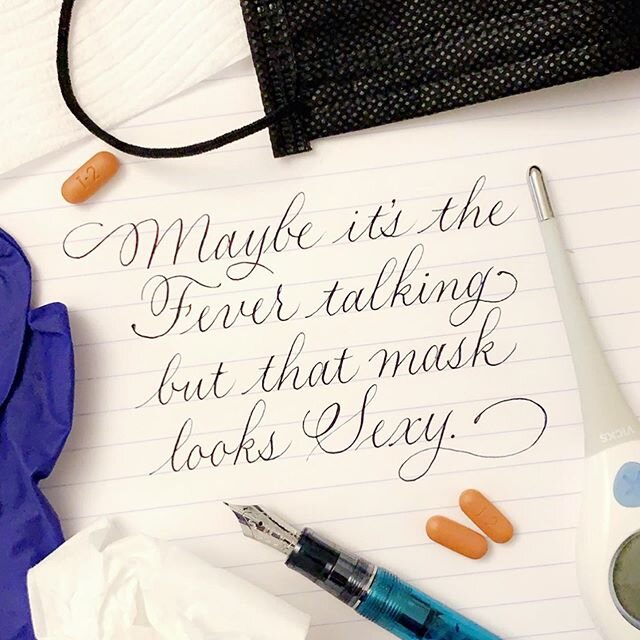 Maybe it's the
Fever talking
but that mask
looks Sexy.
I-2
I-2
VICKS